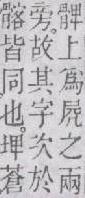 髀上爲屍之兩
旁。故其字次於
髂皆同也。埤蒼